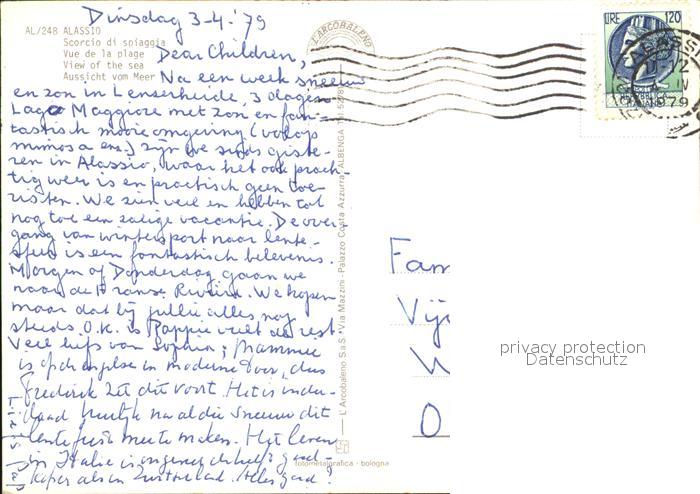 Dinsdag 3-4-'79
AL/248 ALASSIO
Scorcio di spiaggia
Vue de la plage
View of the sea
Aussicht vom Meer
L'ARCOBALENO
LIRE 120
1979
Dear Children,
Na een week sneeuw
en zon in Lenserheide, 3 dagen
Lago Maggiore met zon en fan-
tastisch mooie omgeving (volop
mimosa enz.) zijn we sinds giste-
ren in Alassio, waar het ook prach-
tig weer is en practisch geen toe-
risten. We zien veel en hebben tot
nog toe een zalige vacantie. De over-
gang van wintersport naar lente-
sfeer is een fantastisch belevenis.
Morgen of Donderdag gaan we
naar de Franse Riviera. We hopen
maar dat bij jullie alles nog
steeds O.K. is Pappie vult de rest
Veel liefs van Sophia; Mammie
is dus
Frederik zet dit voort. Het is inder-
daad heerlijk na al die sneeuw dit
lente mee te maken. Het leven
in Italie is goed-
koper als in Zwitserland. Alles goed?
L'Arcobaleno S.a.S - Via Mazzini - Palazzo Costa Azzurra - ALBENGA
fotometalgrafica - bologna
Fam
Vij
W
O
privacy protection
Datenschutz